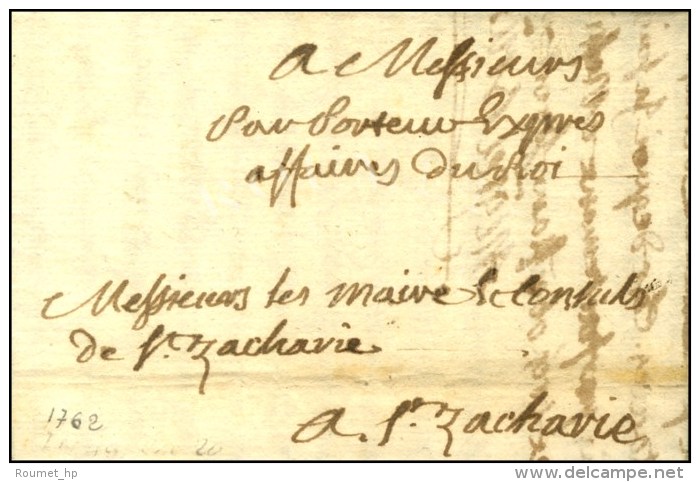 A Messieurs
Par Porteur Exprès
affaires du Roi
Messieurs les maire & Consuls
de St. Zacharie
A St. Zacharie
1762
Roumet_hp
© delcampe.net